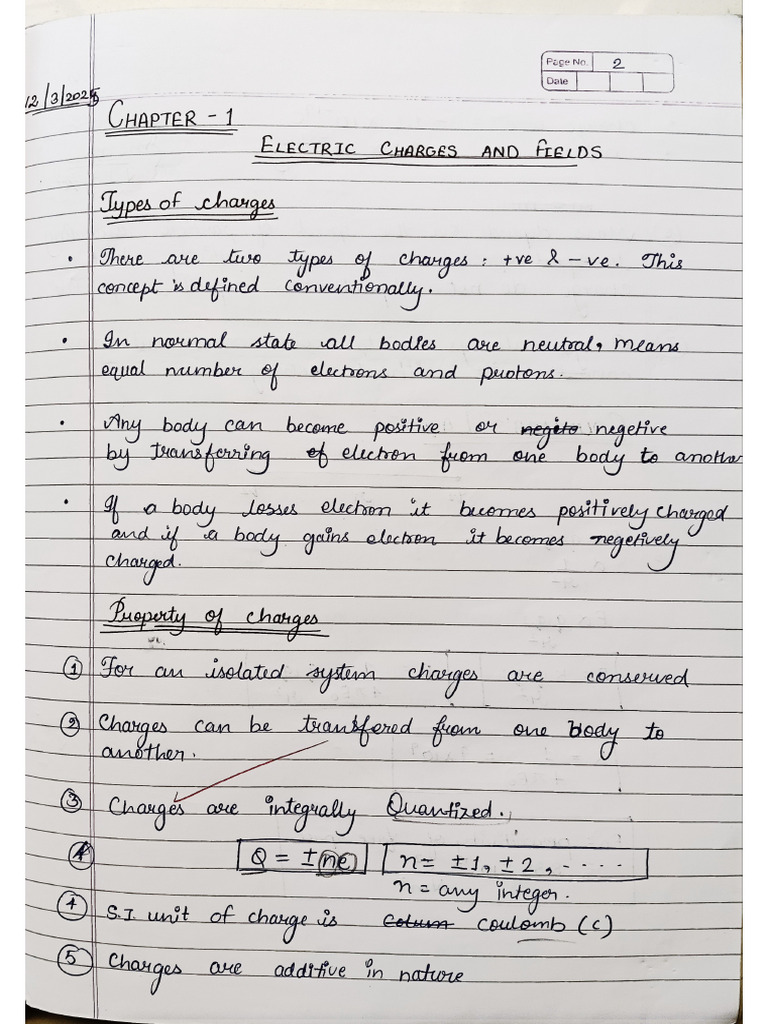 Page No. 2
Date
12/3/2025
CHAPTER - 1
ELECTRIC CHARGES AND FIELDS
Types of charges
• There are two types of charges : +ve & -ve. This
concept is defined conventionally.
• In normal state all bodies are neutral, means
equal number of electrons and protons.
• Any body can become positive or negite negetive
by transferring of electron from one body to another
• If a body losses electron it becomes positively charged
and if a body gains electron it becomes negetively
charged.
Property of charges
① For an isolated system charges are conserved
② Charges can be transfered from one body to
another.
③ Charges are integrally Quantized.
Q = ±ne n = ±1, ±2, - - - -
n = any integer.
④ S.I. unit of charge is Colum coulomb (C)
⑤ Charges are additive in nature